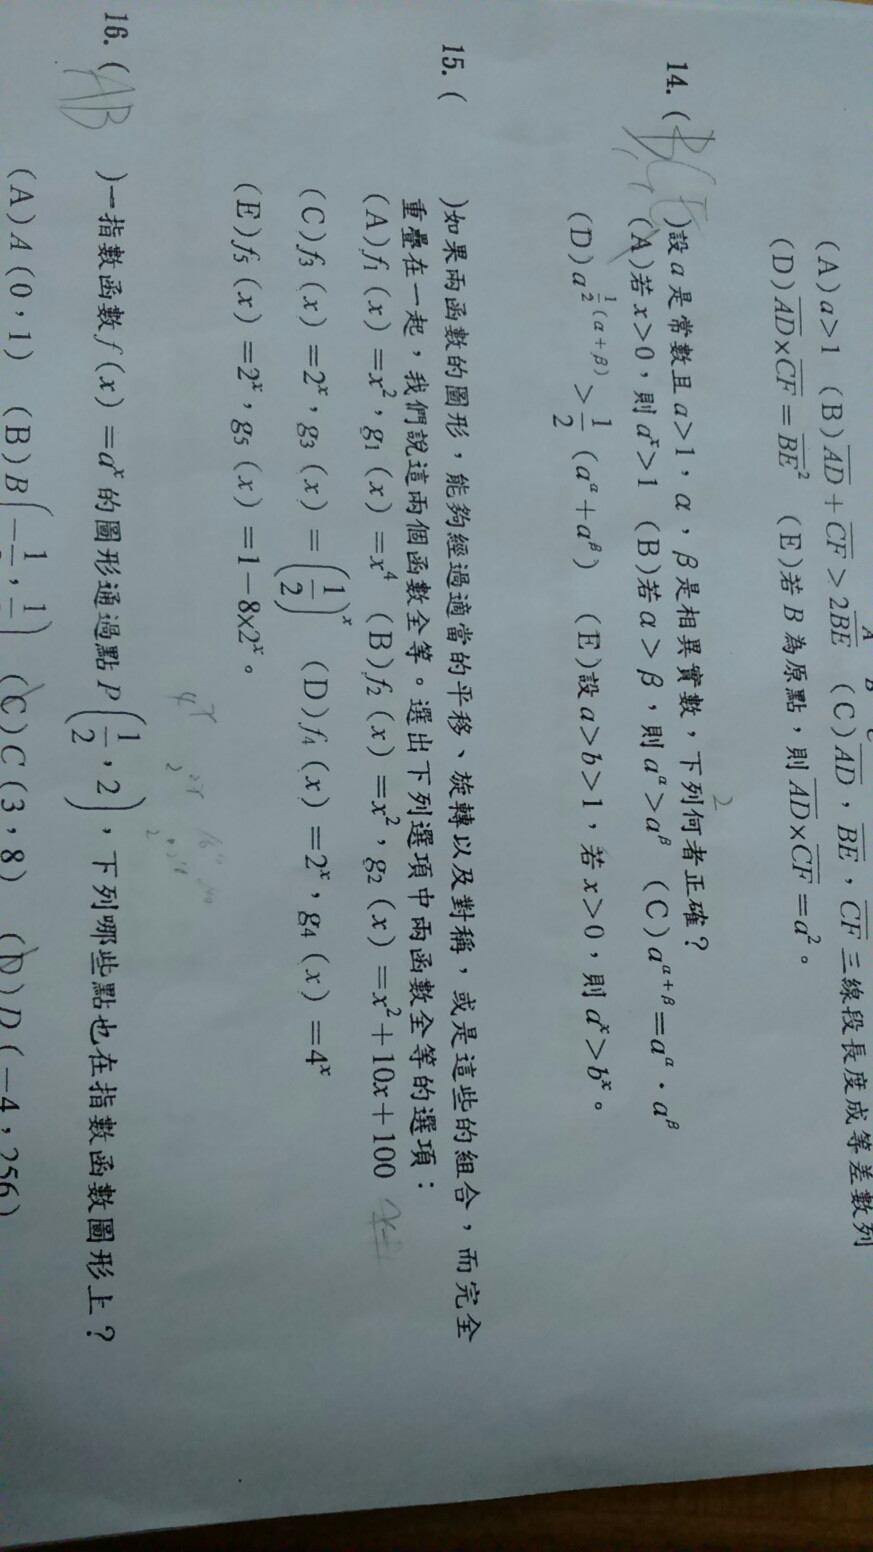 A B C
(A)a>1 (B)AD+CF>2BE (C)AD,BE,CF三線段長度成等差數列
(D)AD×CF=BE² (E)若B為原點,則AD×CF=a²。
2
14. (BCE)設a是常數且a>1,α,β是相異實數,下列何者正確?
(A)若x>0,則aˣ>1 (B)若α>β,則a^α>a^β (C)a^(α+β)=a^α·a^β
(D)a^(1/2(α+β))>1/2(a^α+a^β) (E)設a>b>1,若x>0,則aˣ>bˣ。
15. ( )如果兩函數的圖形,能夠經過適當的平移、旋轉以及對稱,或是這些的組合,而完全
重疊在一起,我們說這兩個函數全等。選出下列選項中兩函數全等的選項:
(A)f₁(x)=x²,g₁(x)=x⁴ (B)f₂(x)=x²,g₂(x)=x²+10x+100
(C)f₃(x)=2ˣ,g₃(x)=(1/2)ˣ (D)f₄(x)=2ˣ,g₄(x)=4ˣ
(E)f₅(x)=2ˣ,g₅(x)=1-8×2ˣ。
4ˣ
2²ˣ
16. (AB)一指數函數f(x)=aˣ的圖形通過點P(1/2,2),下列哪些點也在指數函數圖形上?
(A)A(0,1) (B)B (C)C(3,8) (D)D(-4,256)